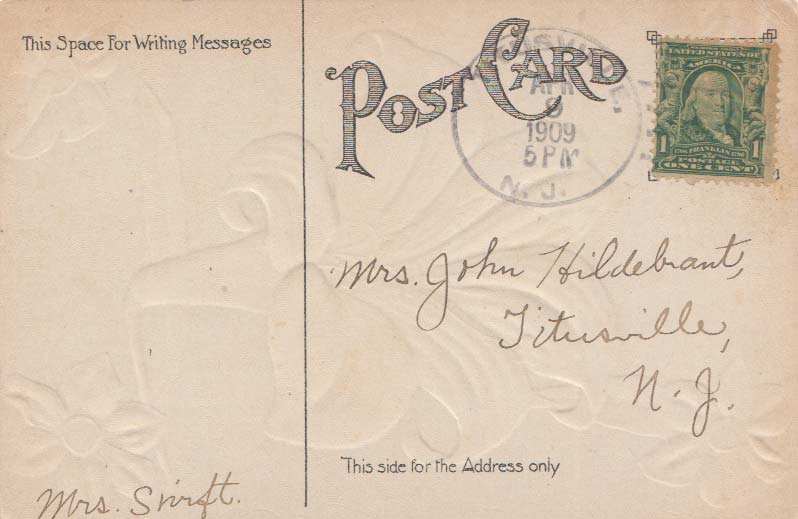 This Space For Writing Messages
POST CARD
APR
1909
5 PM
N. J.
UNITED STATES OF
AMERICA
1 1
1706 FRANKLIN 1790
POSTAGE
ONE CENT
Mrs. John Hildebrant,
Titusville,
N. J.
This side for the Address only
Mrs. Swift.